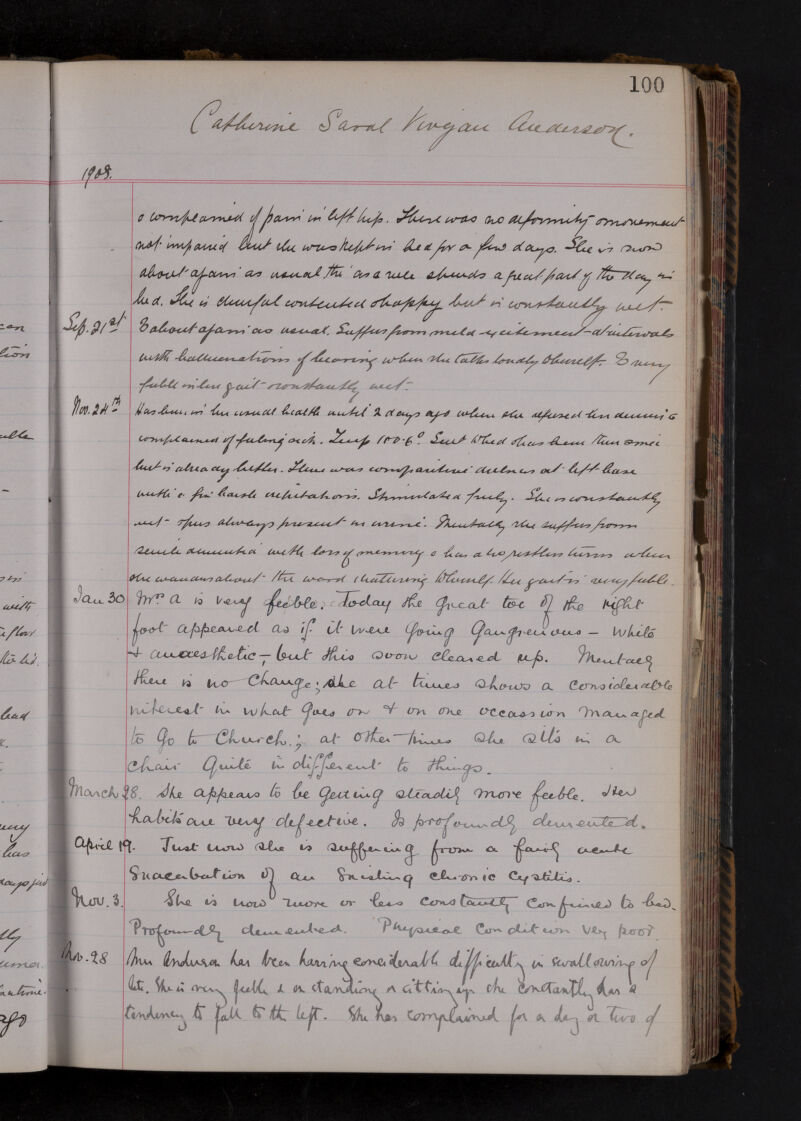 100
Catherine Saral Vivian Anderson.
1908.
& complained of pain in left hip. There was no deformity & movement
not impaired but she was kept in bed for a few days. She is now
about again as usual, tho' as a rule spends a great part of the day in
bed. She is cheerful contented & happy but is constantly wet.
Sep. 21st Is about again as usual. Suffers from mild excitement at intervals
with hallucinations of hearing when she talks loudly to herself. Is very
feeble in her gait & constantly wet.
Nov. 24th Has been in her usual health until 2 days ago when she refused her dinner &
complained of feeling sick. Temp 100.6°. Sent to bed & has been there since
but is already better. There was comparative dulness at left base
with a few harsh crepitations. Stimulated freely. She is constantly
wet & pus always present in urine. Mentally she suffers from
senile dementia with loss of memory & has also restless turns when
she wanders about the ward chattering to herself. Her gait is very feeble.
Jan 30 Mrs A is very feeble. Today the great toe of the right
foot appeared as if it were going gangrenous – white
& anaesthetic –, but this soon cleared up. Mentally
there is no change; she at times shows a considerable
interest in what goes on & on one occassion managed
to go to Church; at other times she sits in a
chair quite indifferent to things.
March 28. She appears to be getting steadily more feeble. Her
habits are very defective. Is profoundly demented.
April 19. Just now she is suffering from a fairly acute
exacerbation of an existing chronic cystitis.
Nov. 3. She is now more or less constantly confined to bed.
Profoundly demented. Physical condition very poor.
Nov. 28 Mrs Anderson has been having considerable difficulty in swallowing of
late. She is very feeble & on standing or sitting up she constantly has a
tendency to fall to the left. She has complained for a day or two of